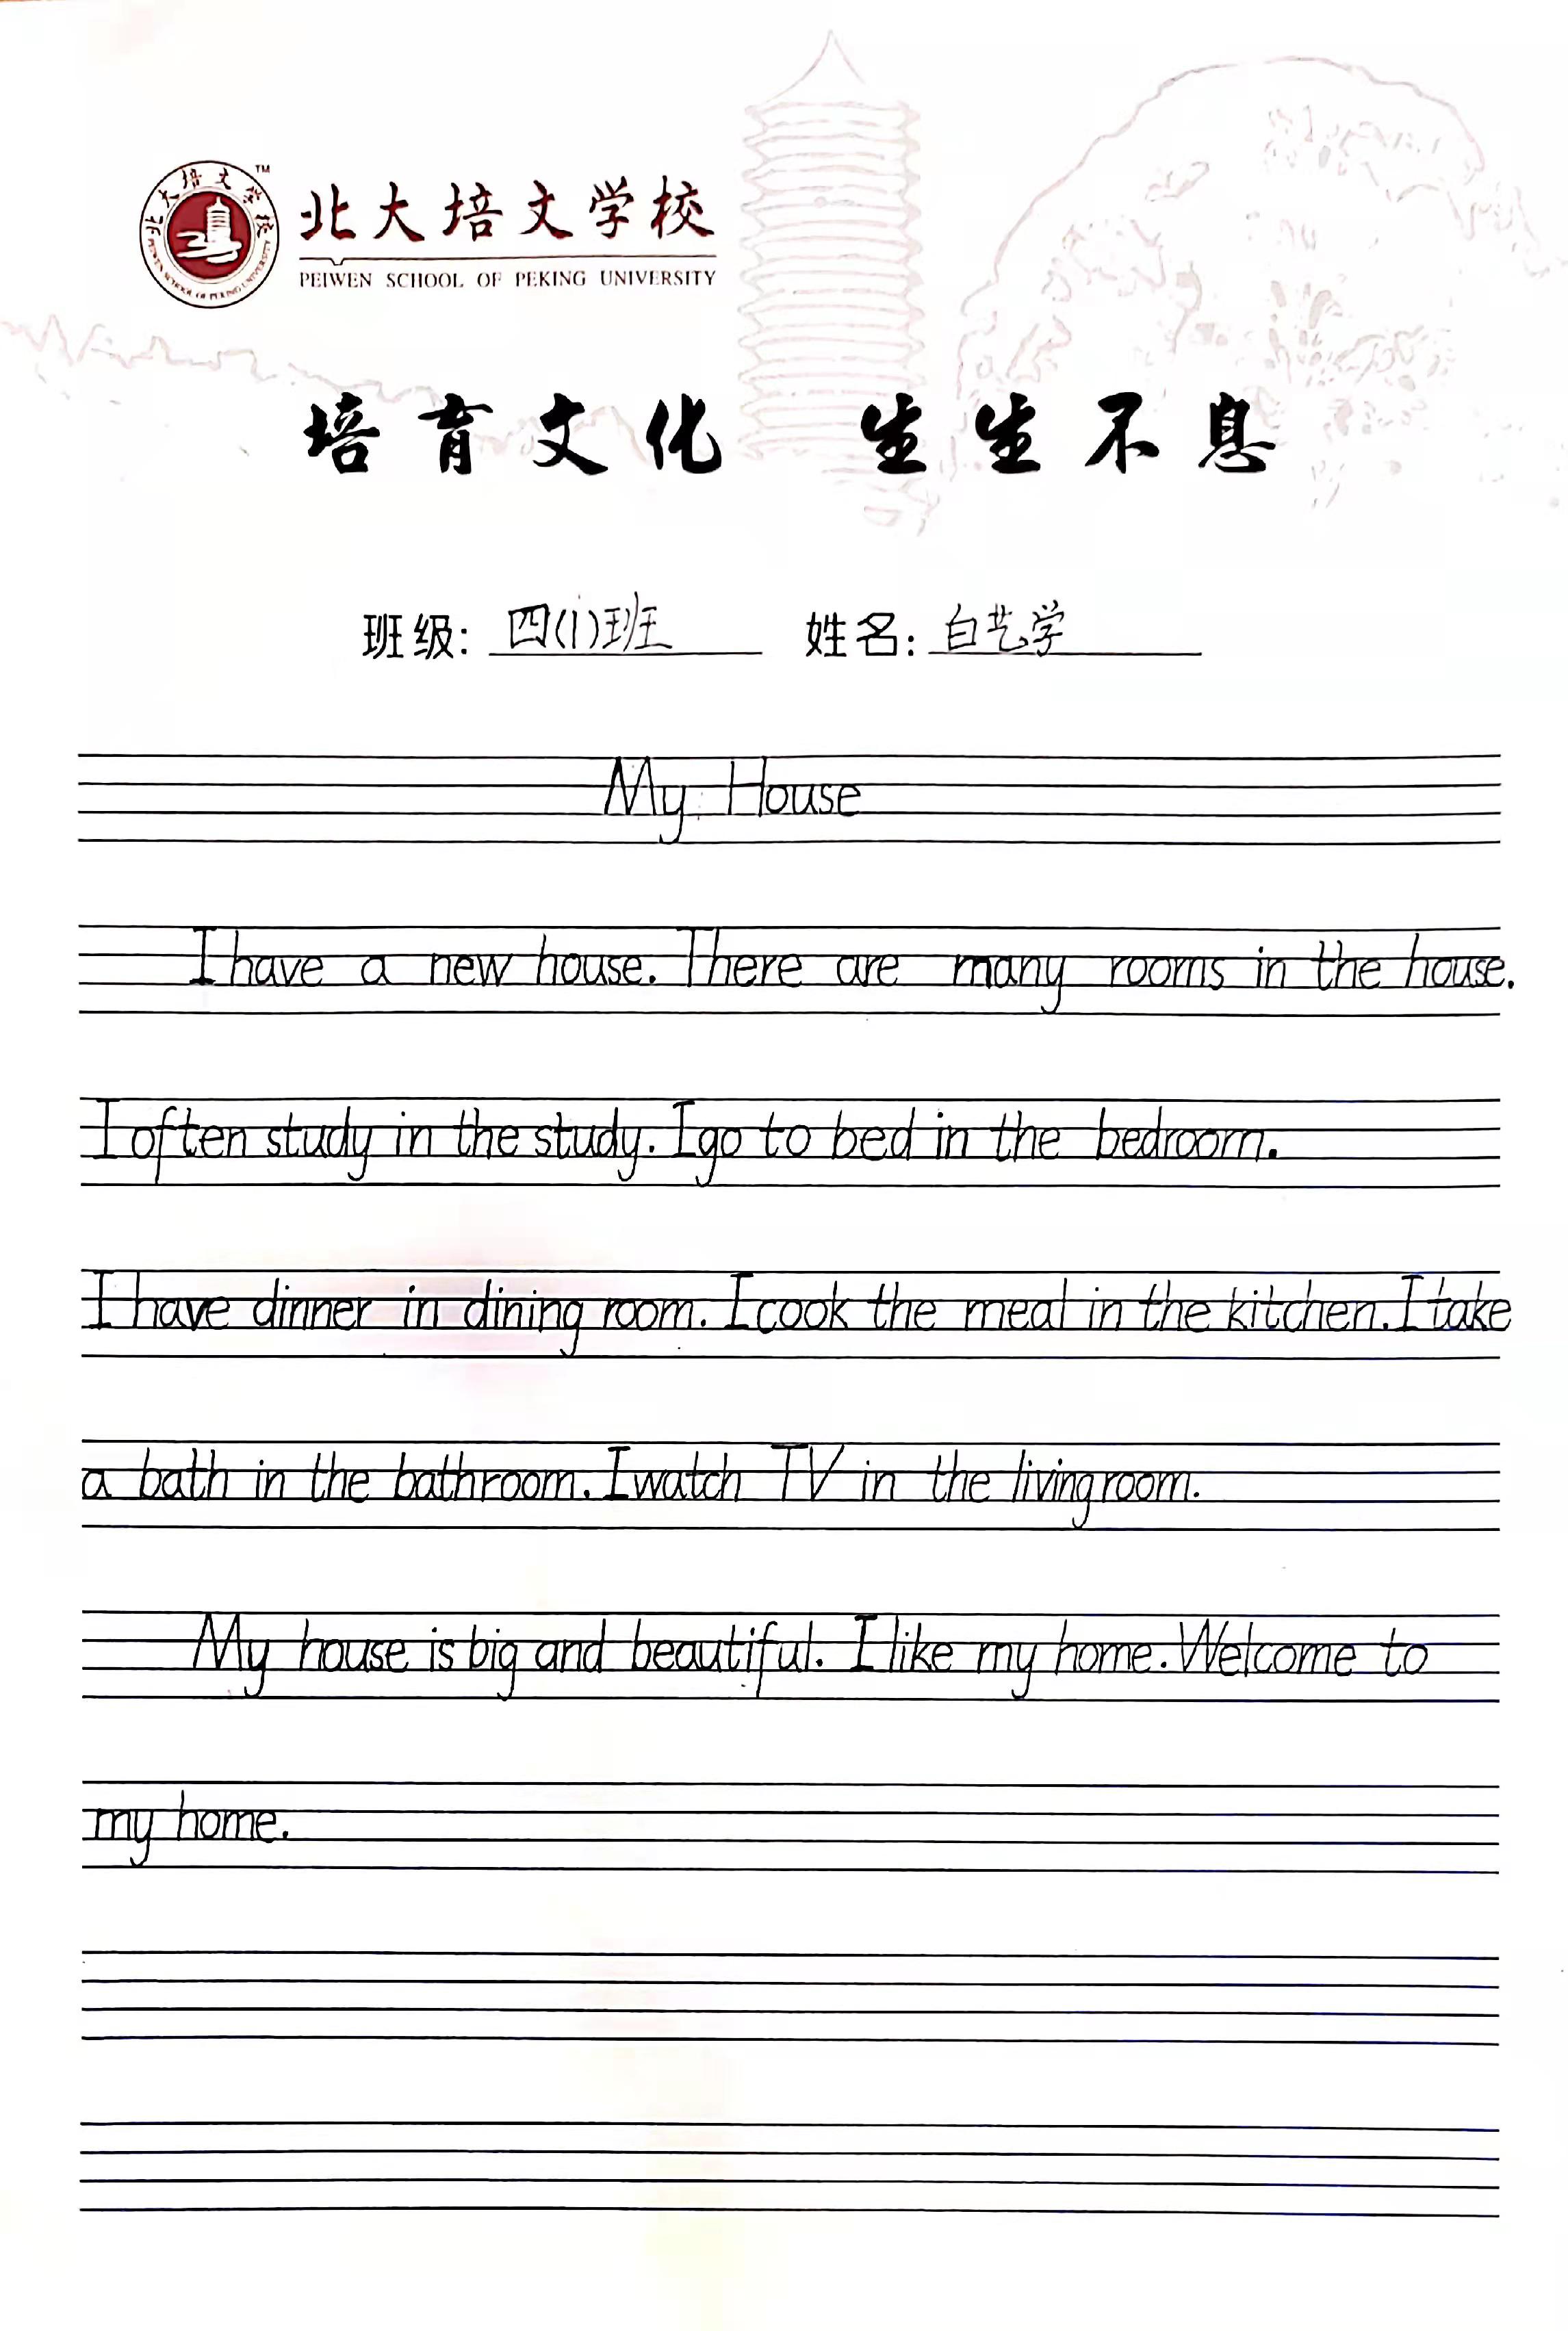 北大培文学校
PEIWEN SCHOOL OF PEKING UNIVERSITY
TM
北大培文学校
PEIWEN SCHOOL OF PEKING UNIVERSITY
培育文化 生生不息
班级: 四(1)班 姓名: 白艺学
My House
I have a new house. There are many rooms in the house.
I often study in the study. I go to bed in the bedroom.
I have dinner in dining room. I cook the meal in the kitchen. I take
a bath in the bathroom. I watch TV in the living room.
My house is big and beautiful. I like my home. Welcome to
my home.